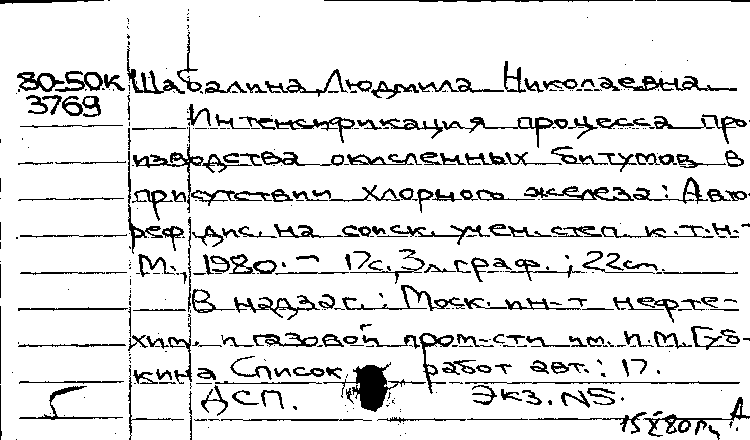 80-50к Шабалина, Людмила Николаевна.
3769
Интенсификация процесса про-
изводства окисленных битумов в
присутствии хлорного железа: Авто-
реф. дис. на соиск. учен. степ. к.т.н.-
М., 1980. - 17с., 3л. граф.; 22см.
В надзаг.: Моск. ин-т нефте-
хим. и газовой пром-сти им. И.М. Губ-
кина. Список работ авт.: 17.
ДСП. Экз. N5.